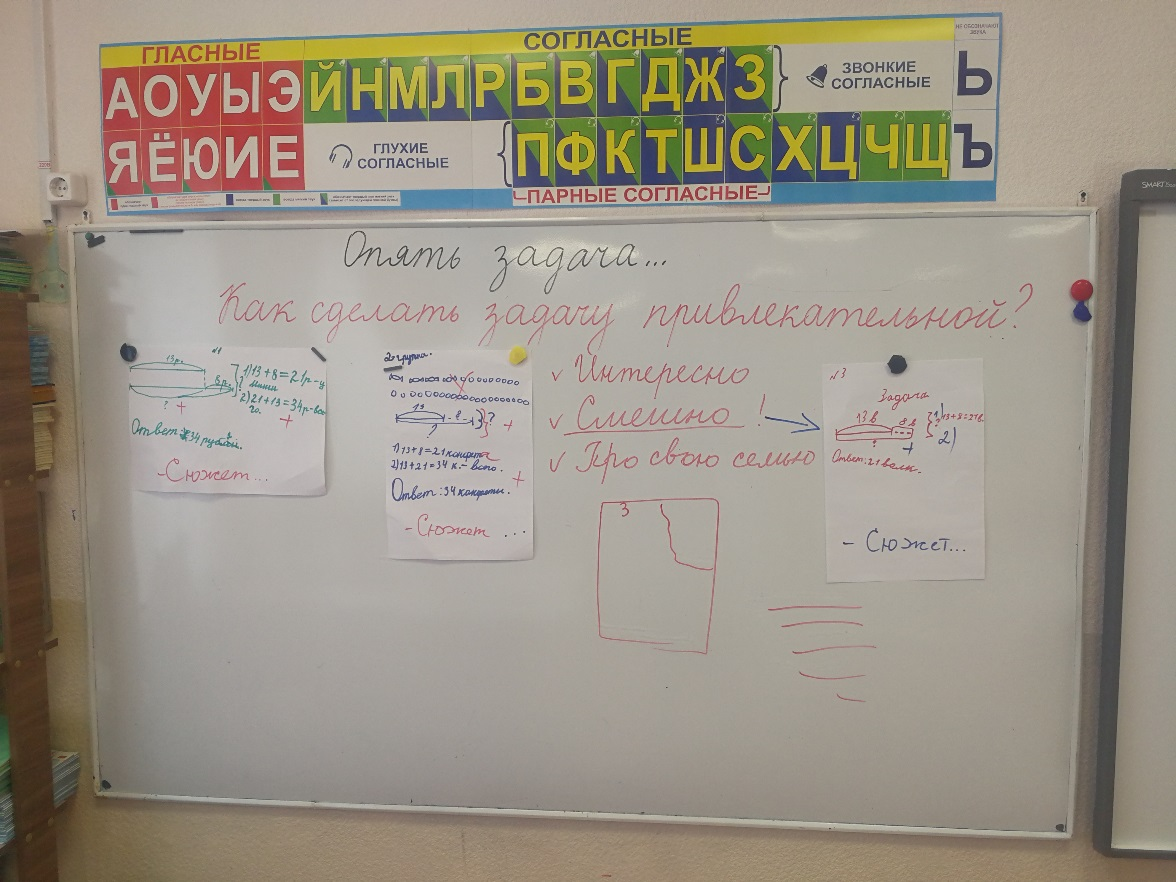 ГЛАСНЫЕ
СОГЛАСНЫЕ
НЕ ОБОЗНАЧАЮТ ЗВУКА
А О У Ы Э Й Н М Л Р Б В Г Д Ж З
ЗВОНКИЕ СОГЛАСНЫЕ
Ь
Я Ё Ю И Е
ГЛУХИЕ СОГЛАСНЫЕ
П Ф К Т Ш С Х Ц Ч Щ
Ъ
ПАРНЫЕ СОГЛАСНЫЕ
SMART
Опять задача...
Как сделать задачу привлекательной?
№1
13р.
8р.
?
1) 13+8=21р-у
2) 21+13=34р-
+
+
Ответ: 34
-Сюжет...
2 группа.
13
8
?
?
+
1) 13+8=21 конфета
2) 13+21=34 к.- всего.
+
Ответ: 34 конфеты.
-Сюжет ...
√ Интересно
√ Смешно !
√ Про свою семью
3
№3
Задача
13 в
8 в
?
1) 13+8=21в.
2)
+
Ответ: 21 велик.
- Сюжет...